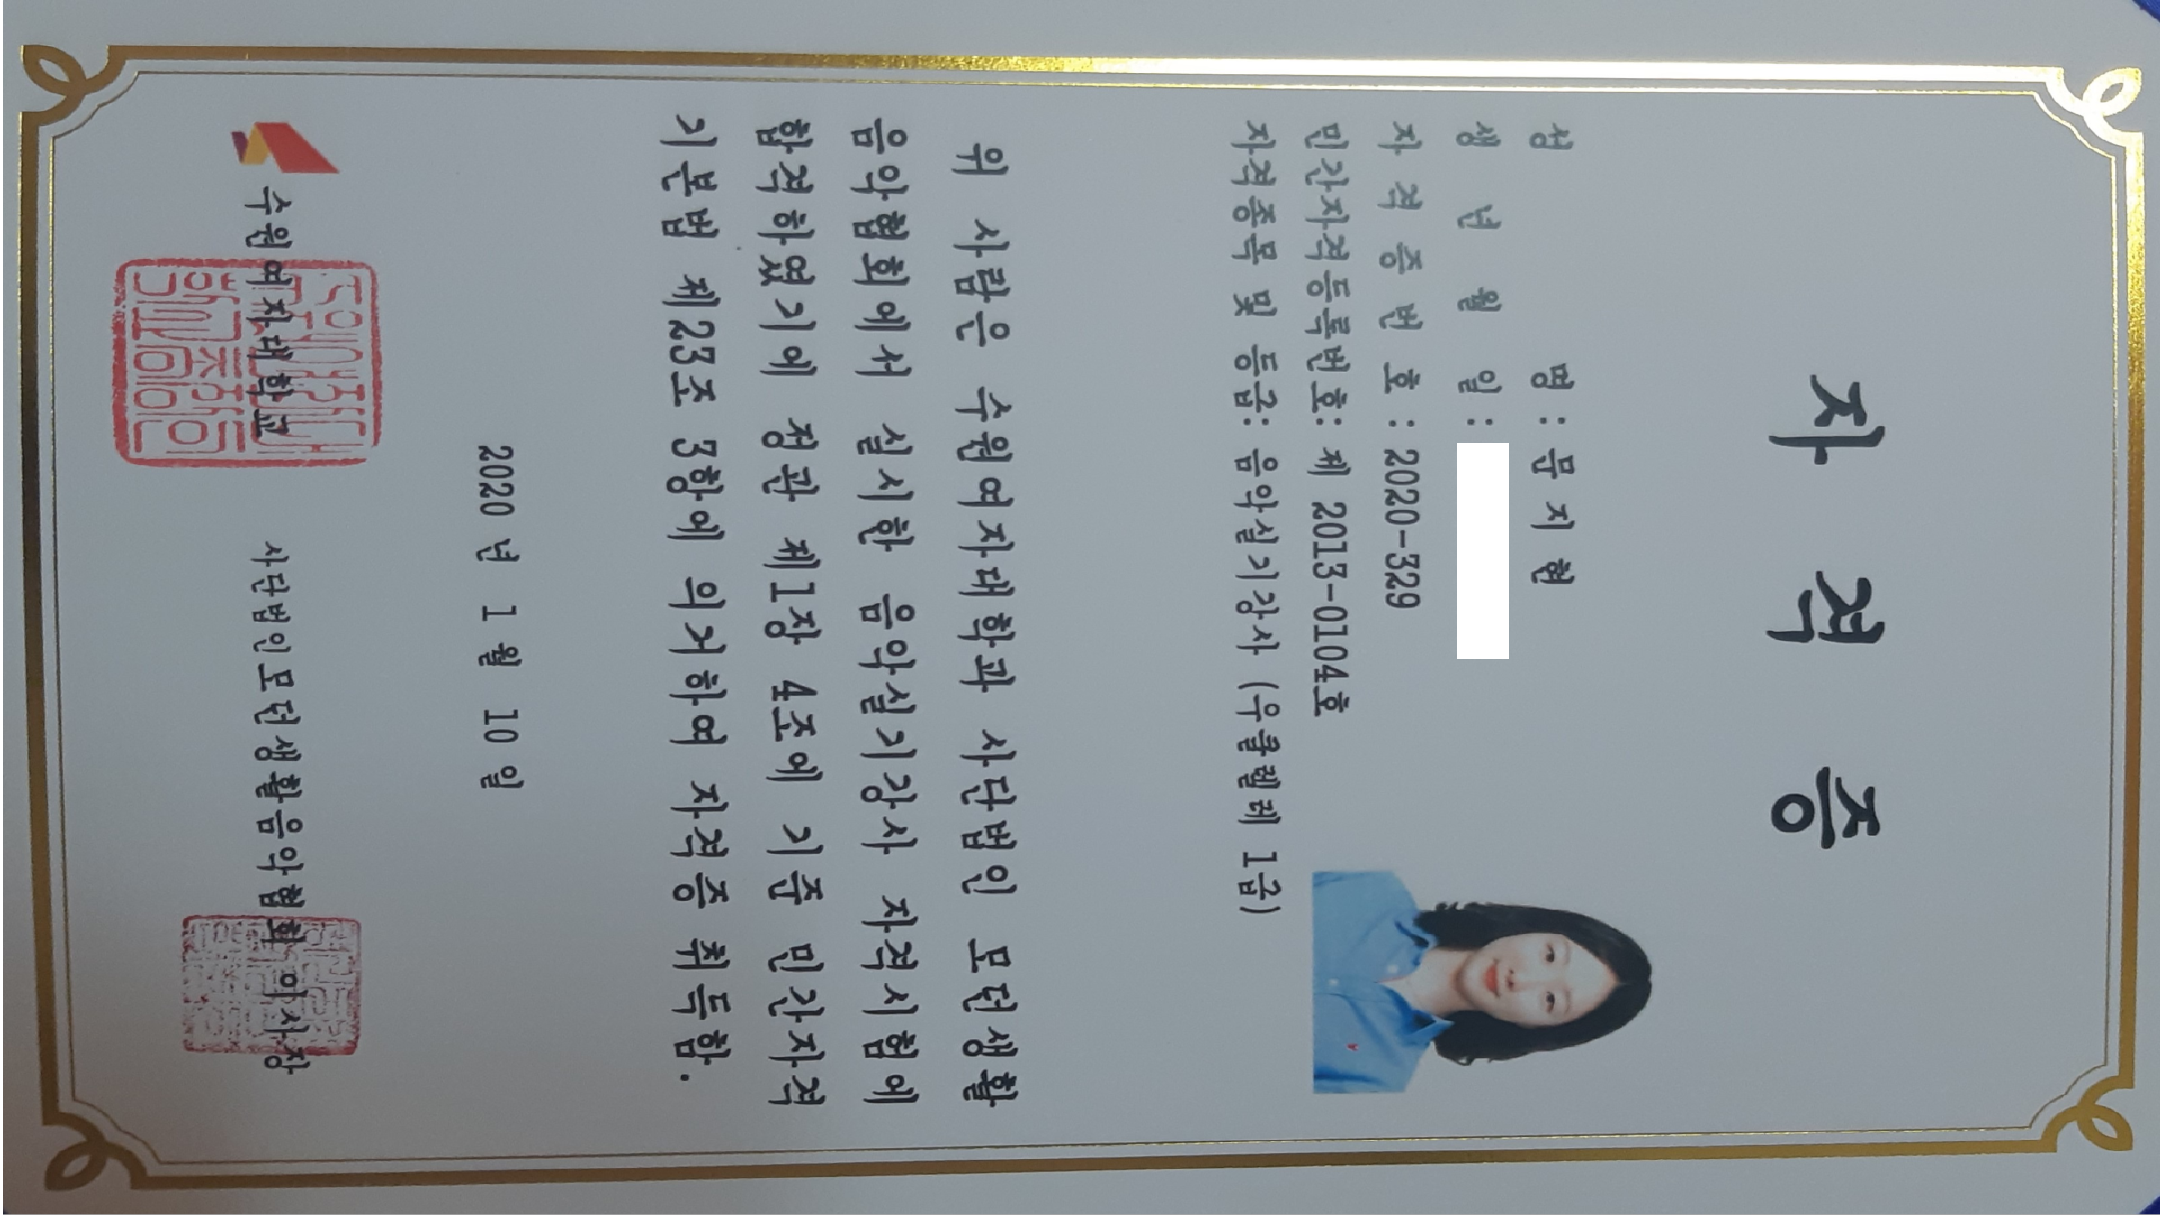 자 격 증
성 명 : 문 지 현
생 년 월 일 :
자 격 증 번 호 : 2020-329
민간자격등록번호: 제 2013-0104호
자격종목 및 등급: 음악실기강사 (우쿨렐레 1급)
위 사람은 수원여자대학과 사단법인 모던생활
음악협회에서 실시한 음악실기강사 자격시험에
합격하였기에 정관 제1장 4조에 기준 민간자격
기본법 제23조 3항에 의거하여 자격증 취득함.
2020 년 1 월 10 일
수원여자대학교 사단법인모던생활음악협회 이사장